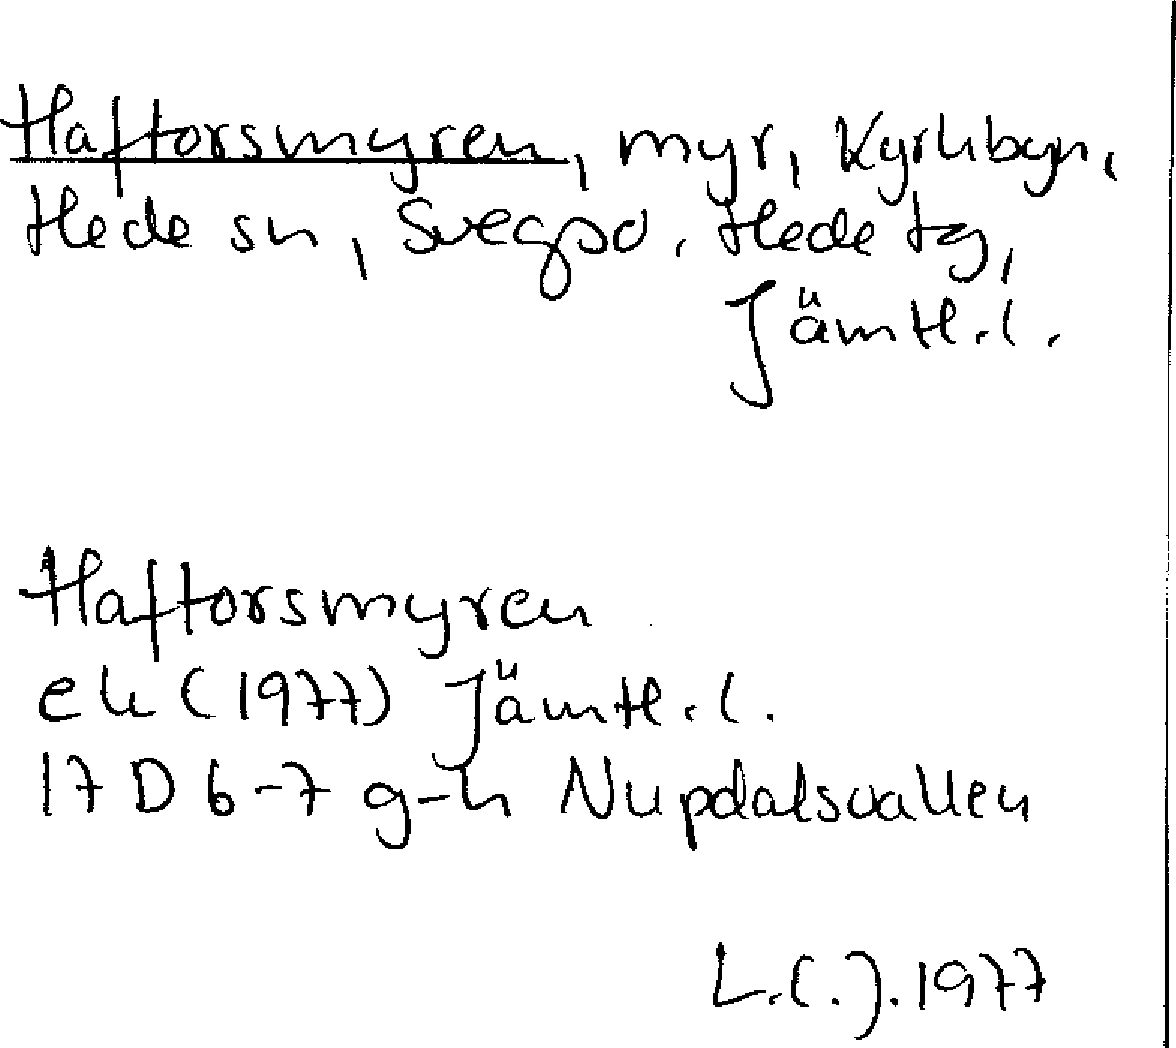 Haftorsmyren, myr, Kyrkbyn,
Hede sn, Svegs pd. Hede tg,
Jämtl. l.
Haftorsmyren
ek (1977) Jämtl. l.
17 D 6-7 g-h Nupdalsvallen
L.(.J. 1977